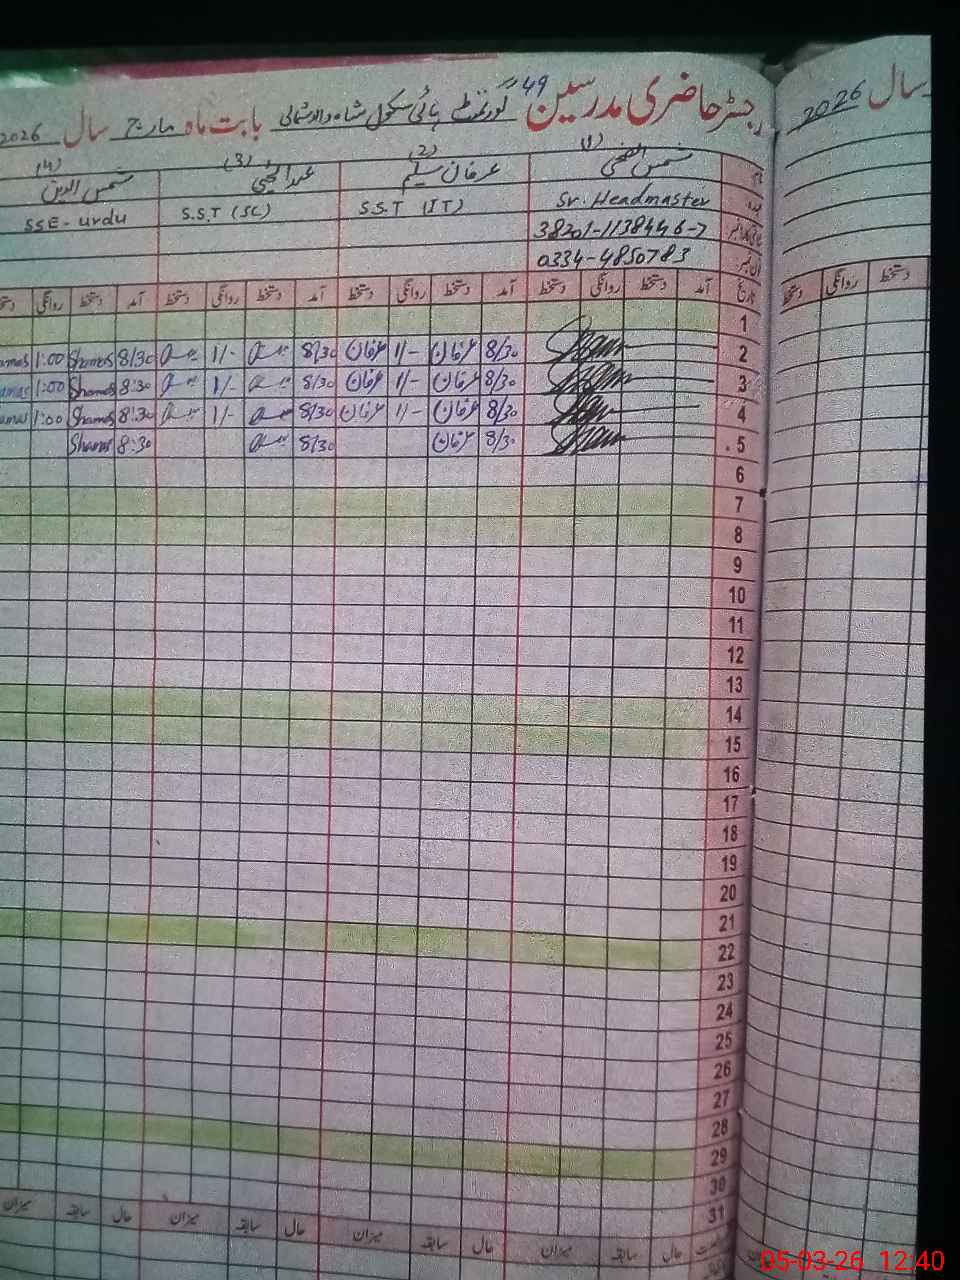 49 رجسٹر حاضری مدرسین گورنمنٹ ہائی سکول شاہ والا شمالی بابت ماہ مارچ سال 2026
سال 2026
(1) (2) (3) (4)
شمس الضحیٰ عرفان سلیم عبدالحئی شمس الدین
Sr. Headmaster S.S.T (IT) S.S.T (SC) SSE- urdu
38201-1138446-7
فون نمبر 0334-4850783
تاریخ آمد دستخط روانگی دستخط آمد دستخط روانگی دستخط آمد دستخط روانگی دستخط آمد دستخط روانگی
دستخط روانگی دستخط
1
2 8/30 عرفان 1/- عرفان 8/30 1/- 8/30 Shamas 1:00
3 8/30 عرفان 1/- عرفان 8/30 1/- 8:30 Shamas 1:00
4 8/30 عرفان 1/- عرفان 8/30 1/- 8:30 Shamas 1:00
5 8/30 عرفان 8/30 8:30 Shamas
6
7
8
9
10
11
12
13
14
15
16
17
18
19
20
21
22
23
24
25
26
27
28
29
30
31
حال سابقہ میزان حال سابقہ میزان حال سابقہ میزان حال سابقہ میزان
05-03-26 12:40